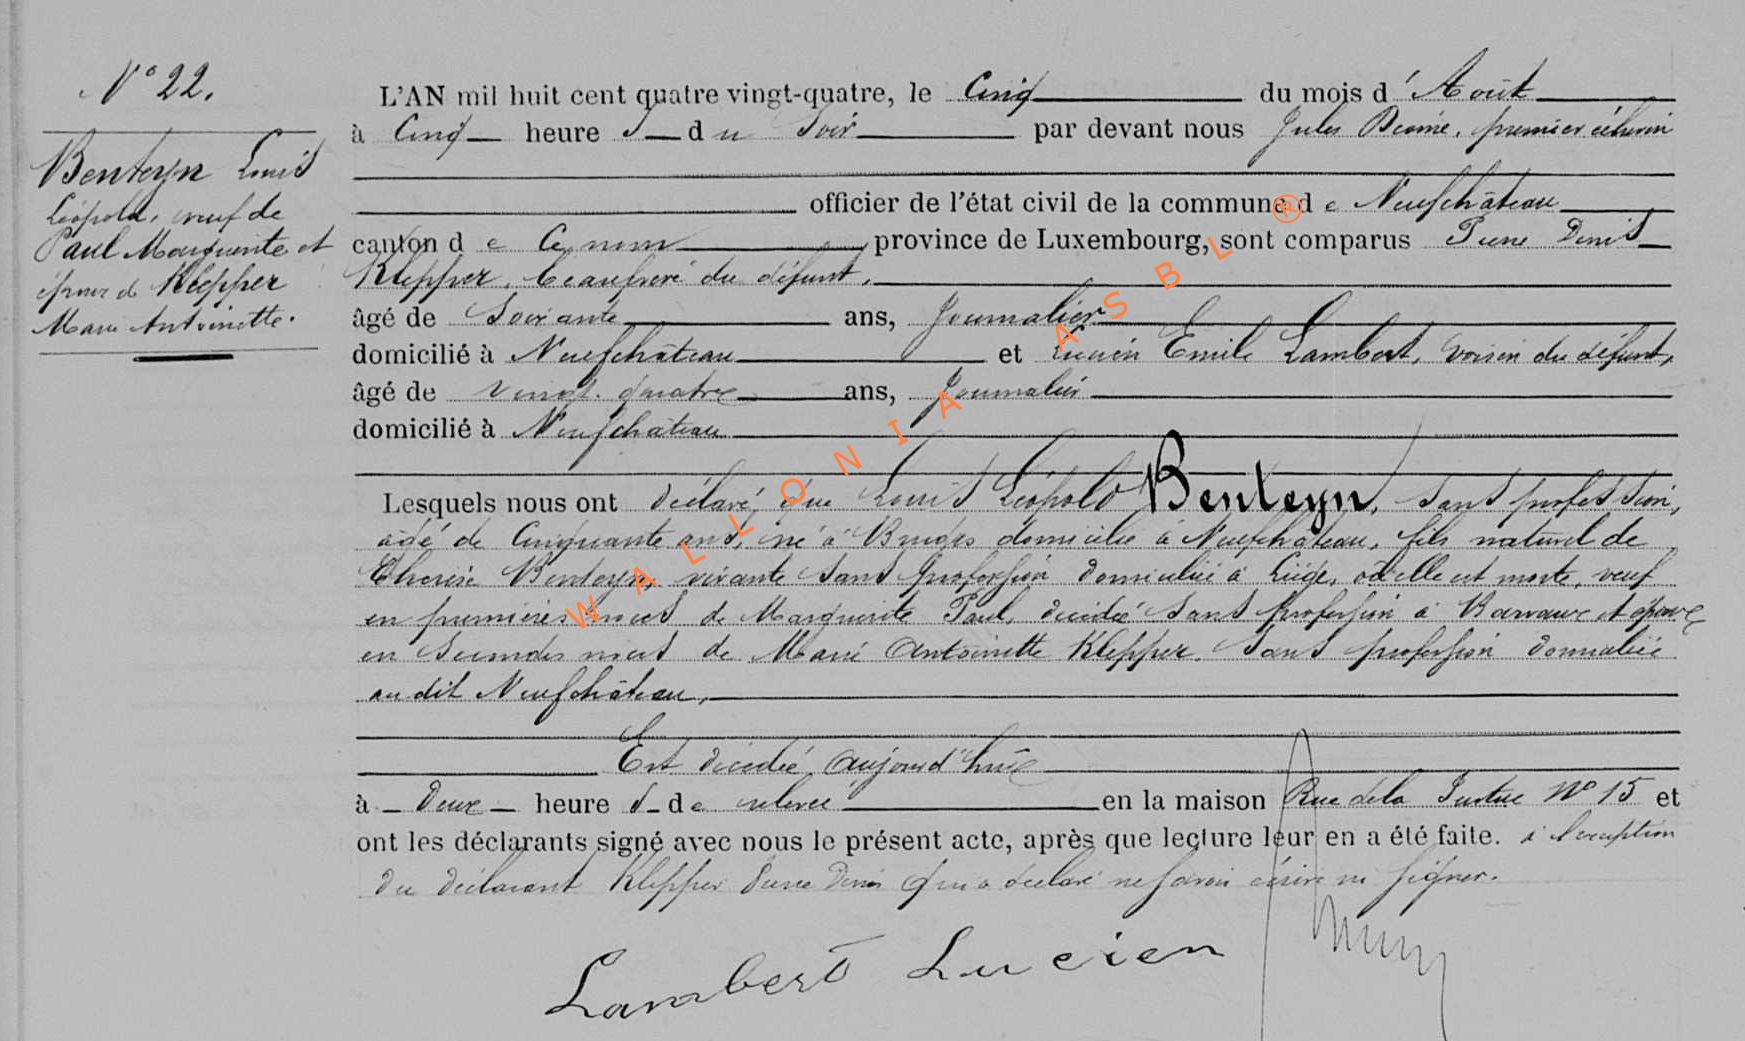 N° 22.
Benteyn Louis
Léopold, veuf de
Paul Marguerite et
époux de Klepper
Marie Antoinette.
L'AN mil huit cent quatre vingt-quatre, le Cinq du mois d'Août
à Cinq heure s du Soir par devant nous Jules premier échevin
officier de l'état civil de la commune de Neufchâteau
canton de Ce nom province de Luxembourg, sont comparus Pierre Denis
Klepper, beaufrère du défunt,
âgé de Soixante ans, Journalier
domicilié à Neufchâteau et Lucien Emile Lambert, voisin du défunt,
âgé de vingt-quatre ans, Journalier
domicilié à Neufchâteau
Lesquels nous ont déclaré que Louis Léopold Benteyn, sans profession,
âgé de Cinquante ans, né à Bruges domicilié à Neufchâteau, fils naturel de
Thérèse Benteyn, vivante sans profession domiciliée à Liège, où elle est morte, veuf
en premières noces de Marguerite Paul, décédée sans profession à et époux
en secondes noces de Marie Antoinette Klepper, sans profession domiciliée
au dit Neufchâteau,
Est décédé aujourd'hui
à Deux heure s de relevée en la maison Rue de la Justice N° 15 et
ont les déclarants signé avec nous le présent acte, après que lecture leur en a été faite. à l'exception
du déclarant Klepper Pierre Denis qui a déclaré ne savoir écrire ni signer.
Lambert Lucien
WALLONIA ASBL ®